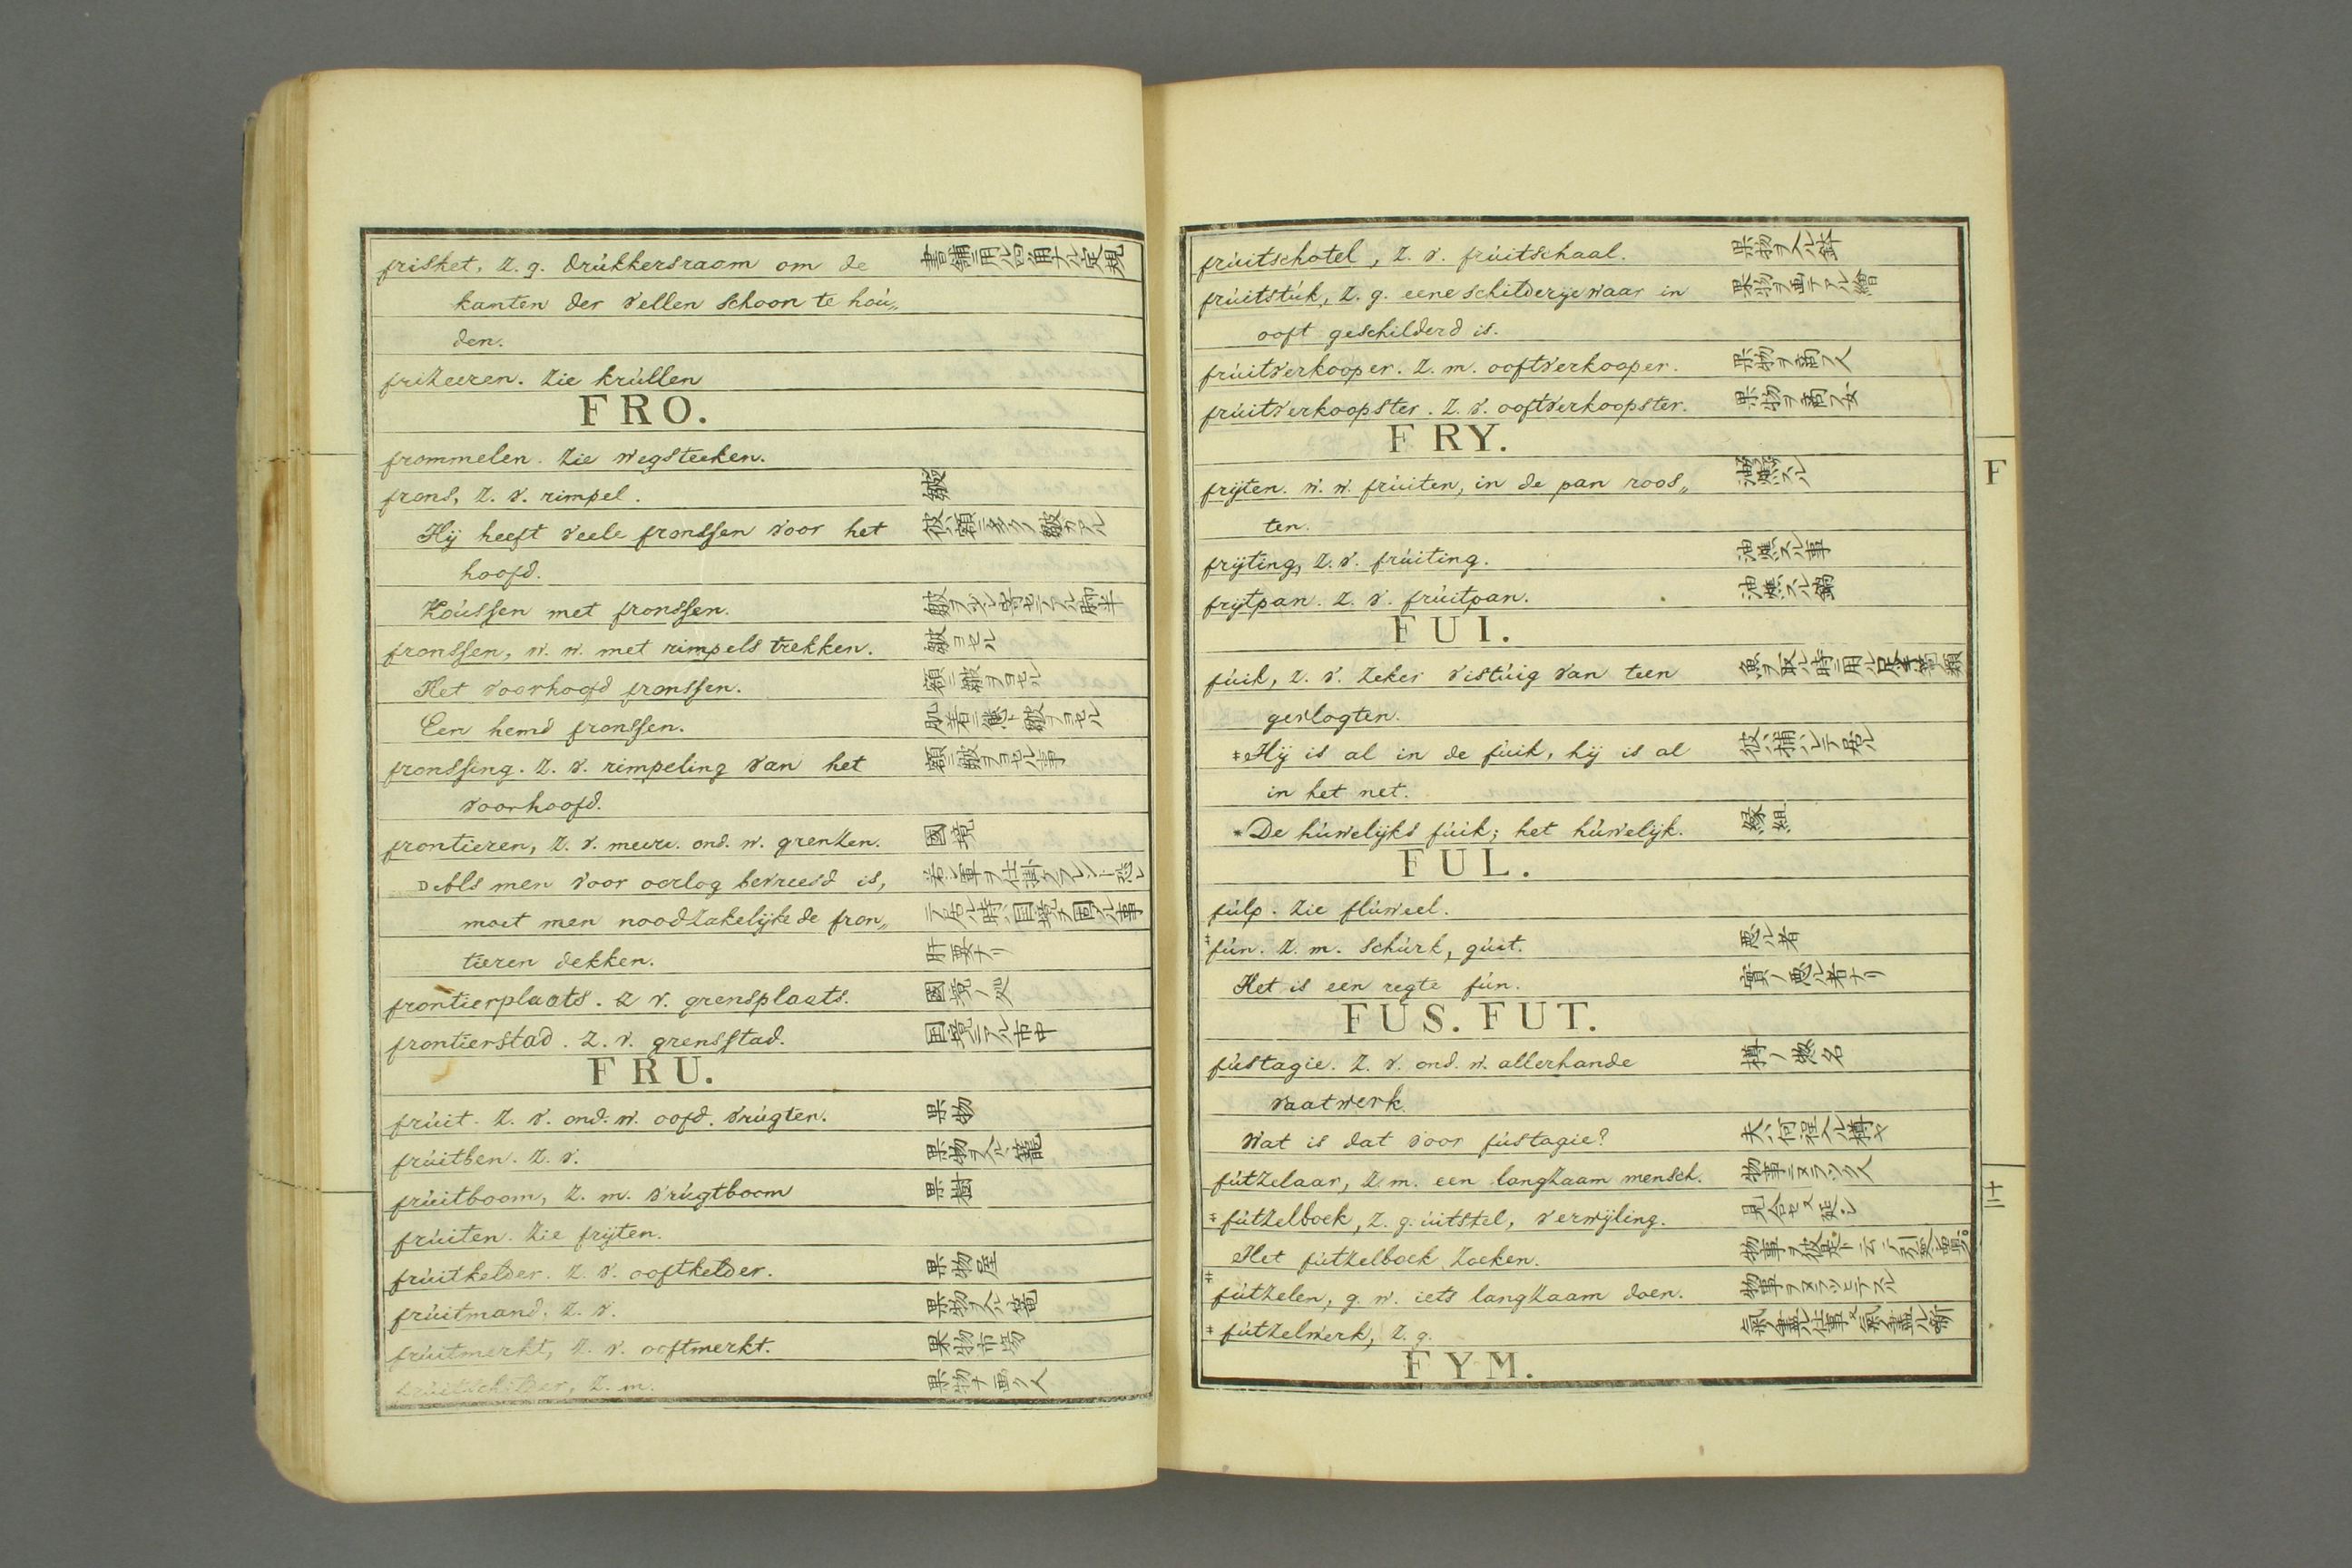 frisket, z. g. drúkkersraam om de 書舗ニ用ル四角ナル定規
kanten der vellen schoon te hoú„
den.
frizeeren. zie krúllen
FRO.
frommelen. zie wegsteeken.
frons, z. v. rimpel. 皺
Hij heeft veele fronssen voor het 彼ハ額ニ多ク皺カアル
hoofd.
Koússen met fronssen.
fronssen, w. w. met rimpels trekken. 皺ヨセル
Het voorhoofd fronssen. 額ニ皺ヲヨセル
Een hemd fronssen. 肌着ニ襞ト皺ヲヨセル
fronssing. z. v. rimpeling van het 額ニ皺ヲヨセル事
voorhoofd.
frontieren, z. v. meerv. ond. w. grenzen. 國境
Als men voor oorlog bevreesd is,
moet men noodzakelijke de fron„ テ居ル時ハ国境ヲ固ル事
tieren dekken. 肝要ナリ
frontierplaats. z v. grensplaats. 國境ノ処
frontierstad. z. v. grensstad. 国境ニアル市中
FRU.
frúit. z. v. ond. w. oofd. vrúgten. 果物
frúitben. z. v. 果物ヲ入ル籠
frúitboom, z. m. vrúgtboom 果樹
frúiten. zie frijten.
frúitkelder. z. v. ooftkelder. 果物屋
frúitmand. z. v. 果物ヲ入ル篭
frúitmerkt, z. v. ooftmerkt. 果物市場
frúitschilder, z. m. 果物ヲ画ク人
frúitschotel, z. v. frúitschaal. 果物ヲ入ル鉢
frúitstúk, z. g. eene schilderije waar in 果物ヲ画テアル繪
ooft geschilderd is.
frúitverkooper. z. m. ooftverkooper. 果物ヲ商フ人
frúitverkoopster. z. v. ooftverkoopster. 果物ヲ商フ女
FRY.
F
frijten. w. w. frúiten, in de pan roos„ 油熬スル
ten.
frijting, z. v. frúiting. 油熬スル事
frijtpan. z. v. frúitpan. 油熬スル鍋
FUI.
fúik, z. v. zeker vistúig van teen
gevlogten.
Hij is al in de fúik, hij is al 彼ハ捕ハレテ居ル
in het net.
De húwelijks fúik; het húwelijk. 縁組
FUL.
fúlp. zie flúweel.
fún. z. m. schúrk, gúit. 悪ル者
Het is een regte fún. 實ノ悪ル者ナリ
FUS. FUT.
fústagie. z. v. ond. w. allerhande 樽ノ惣名
vaatwerk
Wat is dat voor fústagie? 夫ハ何程入ル樽ヤ
fútzelaar, z. m. een langzaam mensch.
二十
fútzelboek, z. g. úitstel, verwijling. 見合セ又延シ
Het fútzelboek zoeken.
fútzelen, g. w. iets langzaam doen.
fútzelwerk, z. g.
FYM.